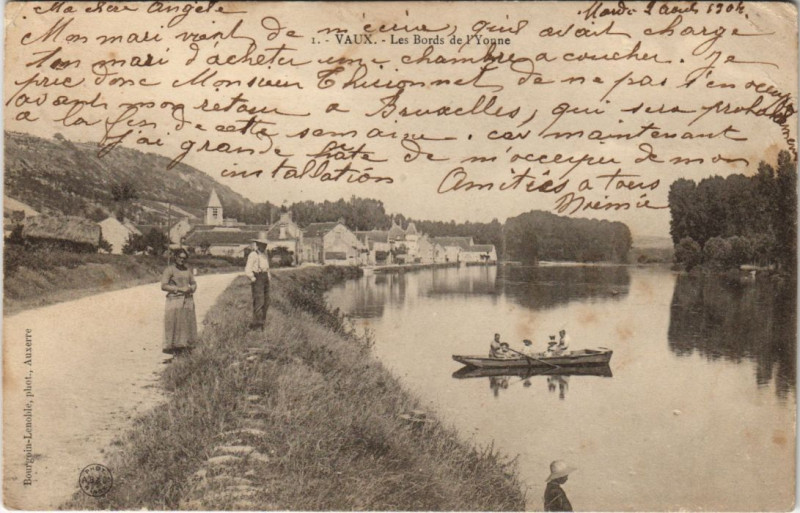 Ma chère Angèle
Mardi 2 août 1904
Mon mari vient de m'écrire qu'il avait chargé
1. - VAUX. - Les Bords de l'Yonne
Ton mari d'acheter une chambre a coucher. Je
prie donc Monsieur de ne pas s'en occuper
avant mon retour a Bruxelles, qui sera probablement
a la fin de cette semaine. car maintenant
j'ai grande hâte de m'occuper de mon
installation
Amitiés a tous
Noémie
Bourgoin-Lenoble, phot., Auxerre